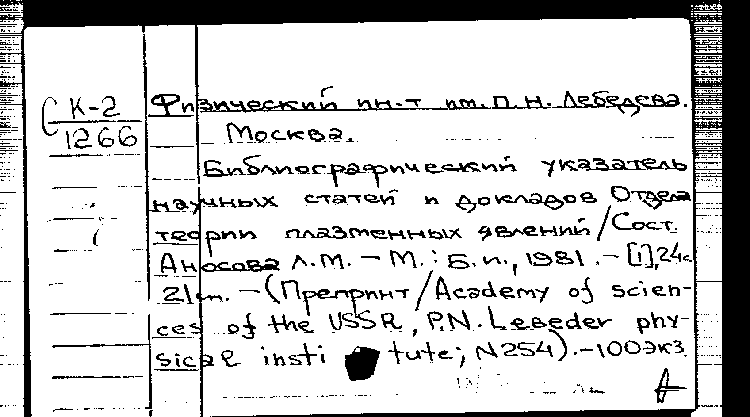 С К-2
1266
Физический ин-т им. П. Н. Лебедева.
Москва.
Библиографический указатель
научных статей и докладов Отдела
теории плазменных явлений / Сост.
Аносова Л.М. – М.: Б.и., 1981. – [1], 24с.
21см. – (Препринт / Academy of scien-
ces of the USSR, P.N. Lebedev phy-
sical insti tute; N254). – 100экз.